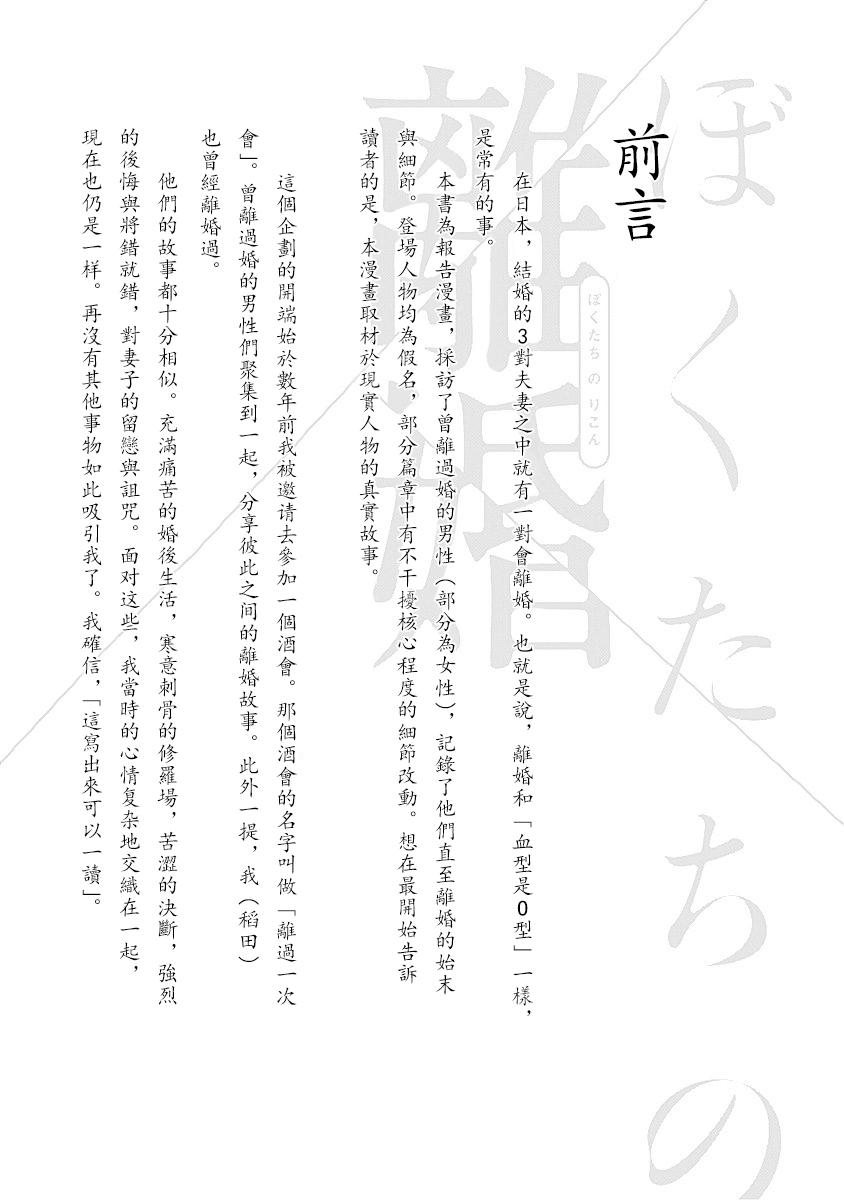 ぼくたちの
離婚
ぼくたち の りこん
前言
在日本，結婚的3對夫妻之中就有一對會離婚。也就是說，離婚和「血型是O型」一樣，
是常有的事。
本書為報告漫畫，採訪了曾離過婚的男性（部分為女性），記錄了他們直至離婚的始末
與細節。登場人物均為假名，部分篇章中有不干擾核心程度的細節改動。想在最開始告訴
讀者的是，本漫畫取材於現實人物的真實故事。
這個企劃的開端始於數年前我被邀请去參加一個酒會。那個酒會的名字叫做「離過一次
會」。曾離過婚的男性們聚集到一起，分享彼此之间的離婚故事。此外一提，我（稻田）
也曾經離婚過。
他們的故事都十分相似。充滿痛苦的婚後生活，寒意刺骨的修羅場，苦澀的決斷，強烈
的後悔與將錯就錯，對妻子的留戀與詛咒。面对这些，我當時的心情复杂地交織在一起，
現在也仍是一样。再沒有其他事物如此吸引我了。我確信，「這寫出來可以一讀」。